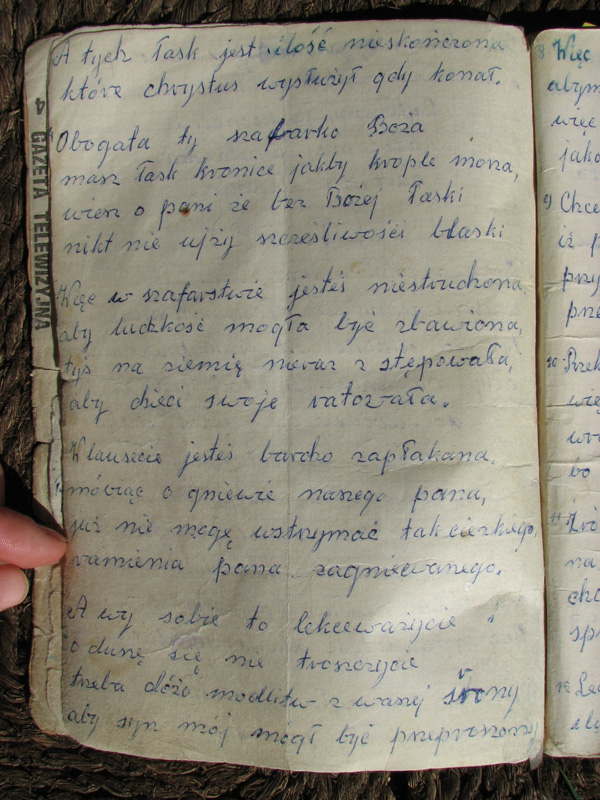 A tych łask jest ilość nieskończona
które chrystus wysłużył gdy konał.
Obogata ty szafarko Boża
masz łask kronice jakby krople moża,
wiesz o pani że bez Bożej Łaski
nikt nie ujży szcześliwośći blaski
Więc w szafarstwie jesteś niestrudzona,
aby ludzkość mogła być zbawiona,
tyś na ziemię nieraz zstępowała,
aby dzieci swoje ratowała.
W lausecie jesteś bardzo zapłakana.
mówiąc o gniewie naszego pana,
już nie mogę wstrzymać tak cierzkiego,
ramienia pana zagniewanego.
A wy sobie to lekceważycie
o duszę się nie troszczycie
trzeba dóżo modlitw z waszej strony
aby syn mój mogł być przeproszony
4 GAZETA TELEWIZYJNA
8 Więc
abym
więc
jako
9) Chce
iż p
przy
prze
10 Przek
wię
bo
11
na
chc
sp
12